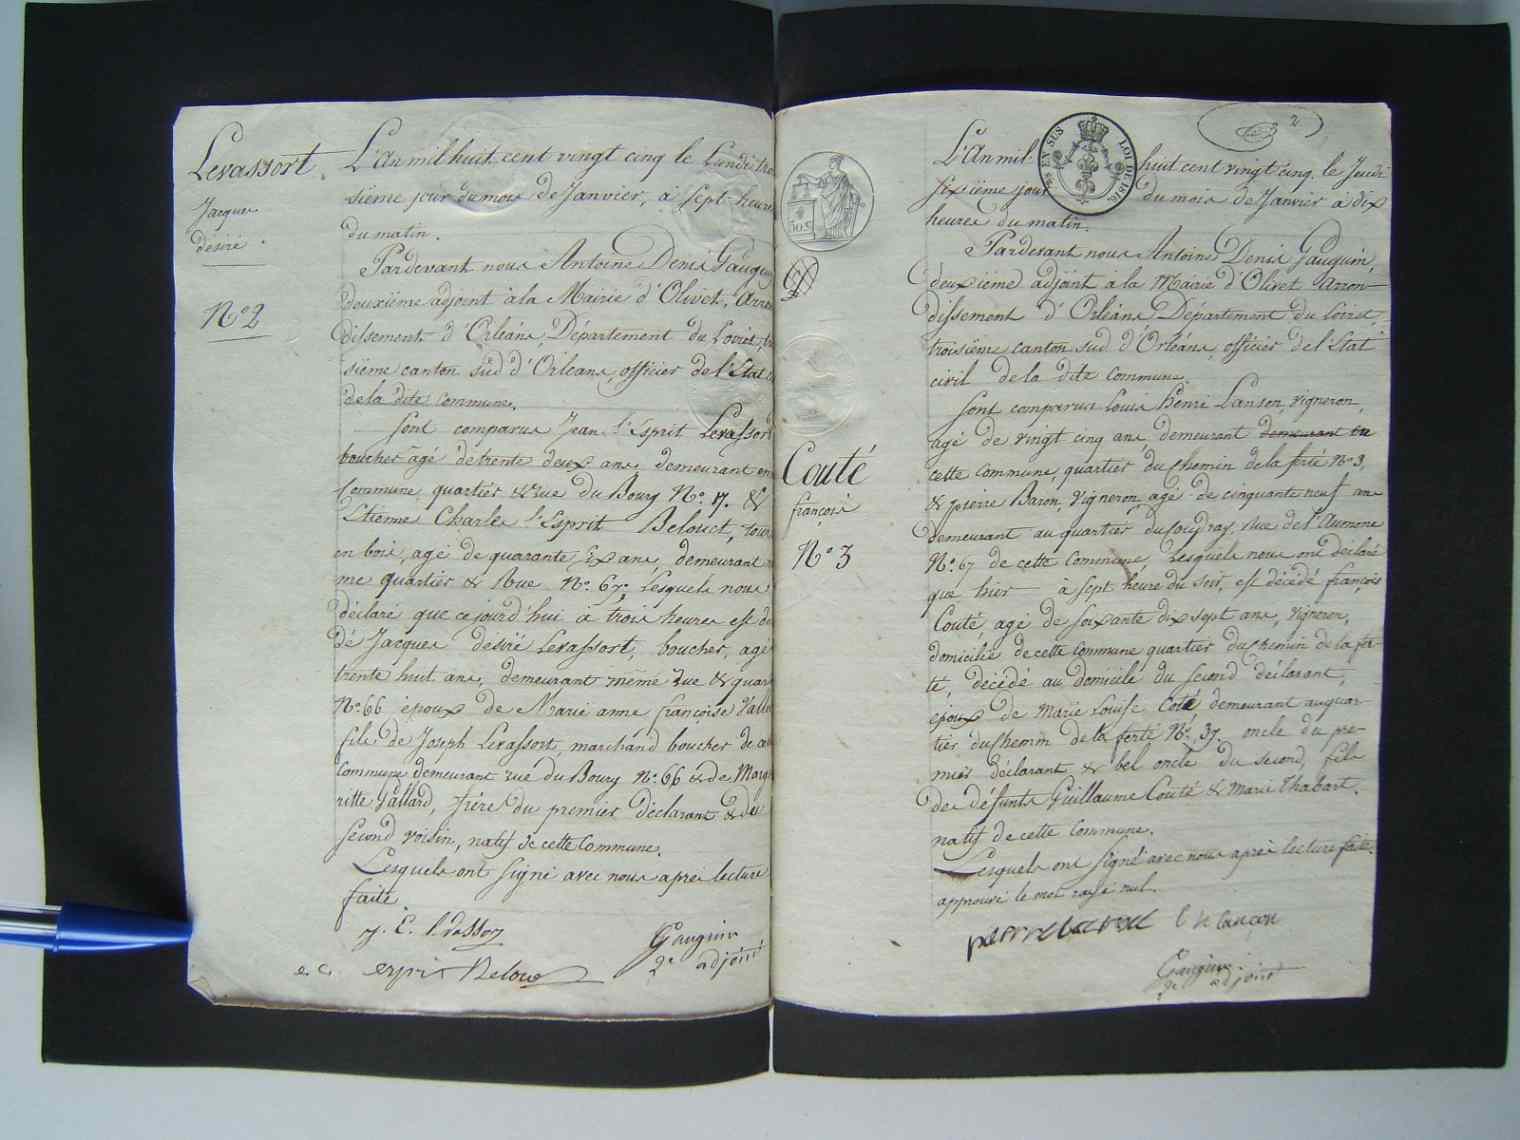 Levassort.
Jacques
désiré.
N.o 2
L'An mil huit cent vingt cinq le Lundi tro
sième jour du mois de Janvier, à sept heures
du matin.
Pardevant nous Antoine Denis Gauguin
deuxième adjoint à la Mairie d'Olivet, Arron
dissement d'Orléans, Département du Loiret, tro
sième canton sud d'Orléans, officier de l'Etat
de la dite commune.
Sont comparus Jean l'Esprit Levassort
boucher âgé de trente deux ans, demeurant en
Commune, quartier & rue du Bourg N.o 17. &
Etienne Charles l'Esprit Belouet, tour
en bois, agé de quarante six ans, demeurant
me quartier & Rue N.o 67, Lesquels nous
déclaré que cejourd'hui à trois heures est dé
dé Jacques désiré Levassort, boucher, agé
trente huit ans, demeurant même rue & quar
N.o 66 époux de Marie anne françoise Valla
fils de Joseph Levassort, marchand boucher de
Commune demeurant rue du Bourg N.o 66 & de Marg
ritte Vallard, frère du premier déclarant & du
second voisin, natif de cette Commune.
Lesquels ont signé avec nous après lecture
faite
J. E. Levassor
Gauguin
2e adjoint
e. c. esprit Belou
2
EN SUS
LOI DE 1816
50 C
Couté
françois
N.o 3
L'An mil huit cent vingt cinq, le Jeudi
sixième jour du mois de Janvier à dix
heures du matin.
Pardevant nous Antoine Denis Gauguin,
deuxième adjoint à la Mairie d'Olivet Arron-
dissement d'Orléans Département du Loiret,
troisième canton sud d'Orléans, officier de l'Etat
civil de la dite commune.
Sont comparus Louis Henri Lanson, vigneron,
agé de vingt cinq ans, demeurant demeurant en
cette commune, quartier du chemin de la ferté N.o 3,
& pierre Baron, vigneron, agé de cinquante neuf ans
demeurant au quartier du Coudray, Rue de l'Aumone
N.o 67 de cette Commune, Lesquels nous ont déclaré
que hier à sept heure du soir, est décédé françois
Couté, agé de soixante dix sept ans, vigneron,
domicilié de cette commune quartier du chemin de la fer-
té, décédé au domicile du second déclarant,
époux de Marie Louise Coté demeurant au quar-
tier du chemin de la ferté N.o 37. oncle du pre-
mier déclarant & bel oncle du second, fils
de défunts Guillaume Couté & Marie Thabart.
natif de cette commune.
Lesquels ont signé avec nous après lecture faite.
approuvé le mot rayé nul.
pierre baron l h lançon
Gauguin
2e adjoint